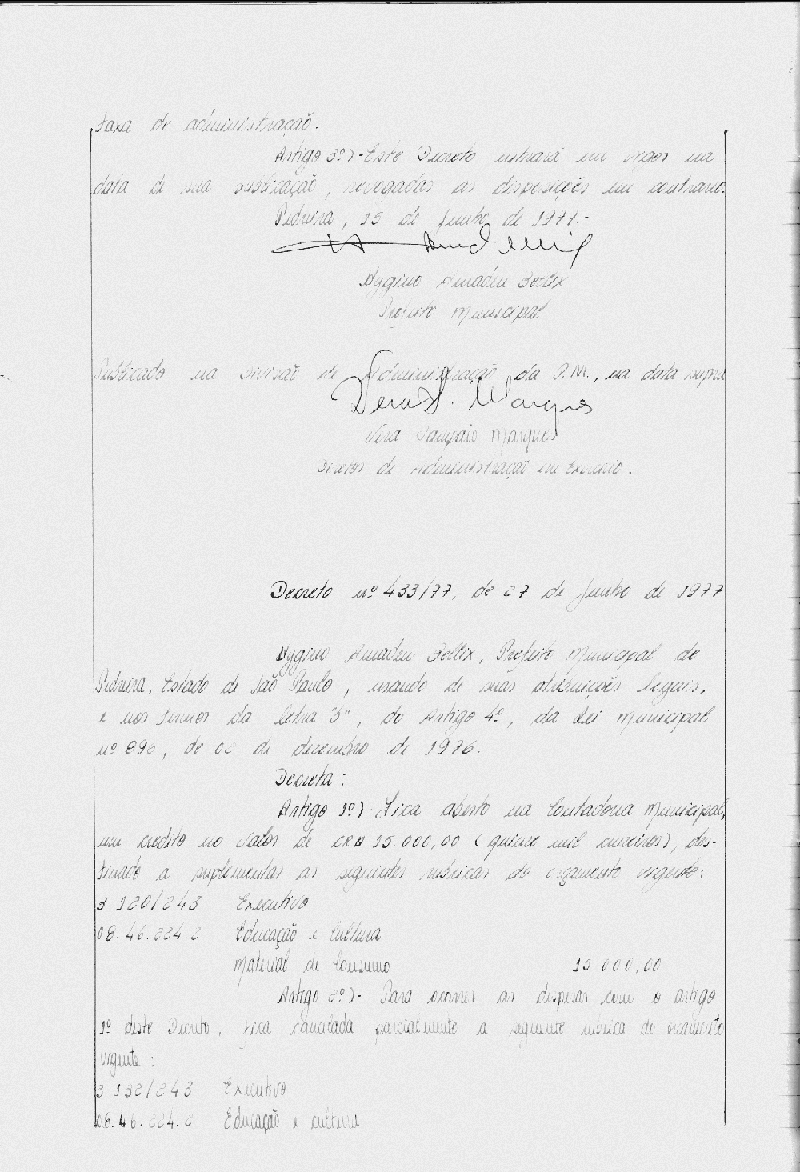 Taxa de administração.
Artigo 3º)- Este Decreto entrará em vigor na
data de sua publicação, revogadas as disposições em contrário.
Pedreira, 15 de Junho de 1977.-
Hygino Amadeu Bellix
Prefeito Municipal
Publicado na Divisão de Administração da P.M., na data supra
Vera S. Marques
Vera Sampaio Marques
Diretor de Administração em Exercício.
Decreto nº 433/77, de 27 de Junho de 1977
Hygino Amadeu Bellix, Prefeito Municipal de
Pedreira, Estado de São Paulo, usando de suas atribuições legais,
e nos termos da letra "b", do Artigo 4º, da Lei Municipal
nº 896, de de dezembro de 1976.
Decreta:
Artigo 1º)- Fica aberto na Contadoria Municipal,
um crédito no valor de CR$ 15.000,00 (quinze mil cruzeiros), des-
tinado a suplementar as seguintes rubricas do orçamento vigente:
3 120/243 Executivo
08.46.224.2 Educação e Cultura
Material de Consumo 15.000,00
Artigo 2º)- Para ocorrer as despesas com o artigo
1º deste Decreto, fica cancelada parcialmente a seguinte rubrica do orçamento
vigente:
3 132/243 Executivo
08.46.224.2 Educação e cultura